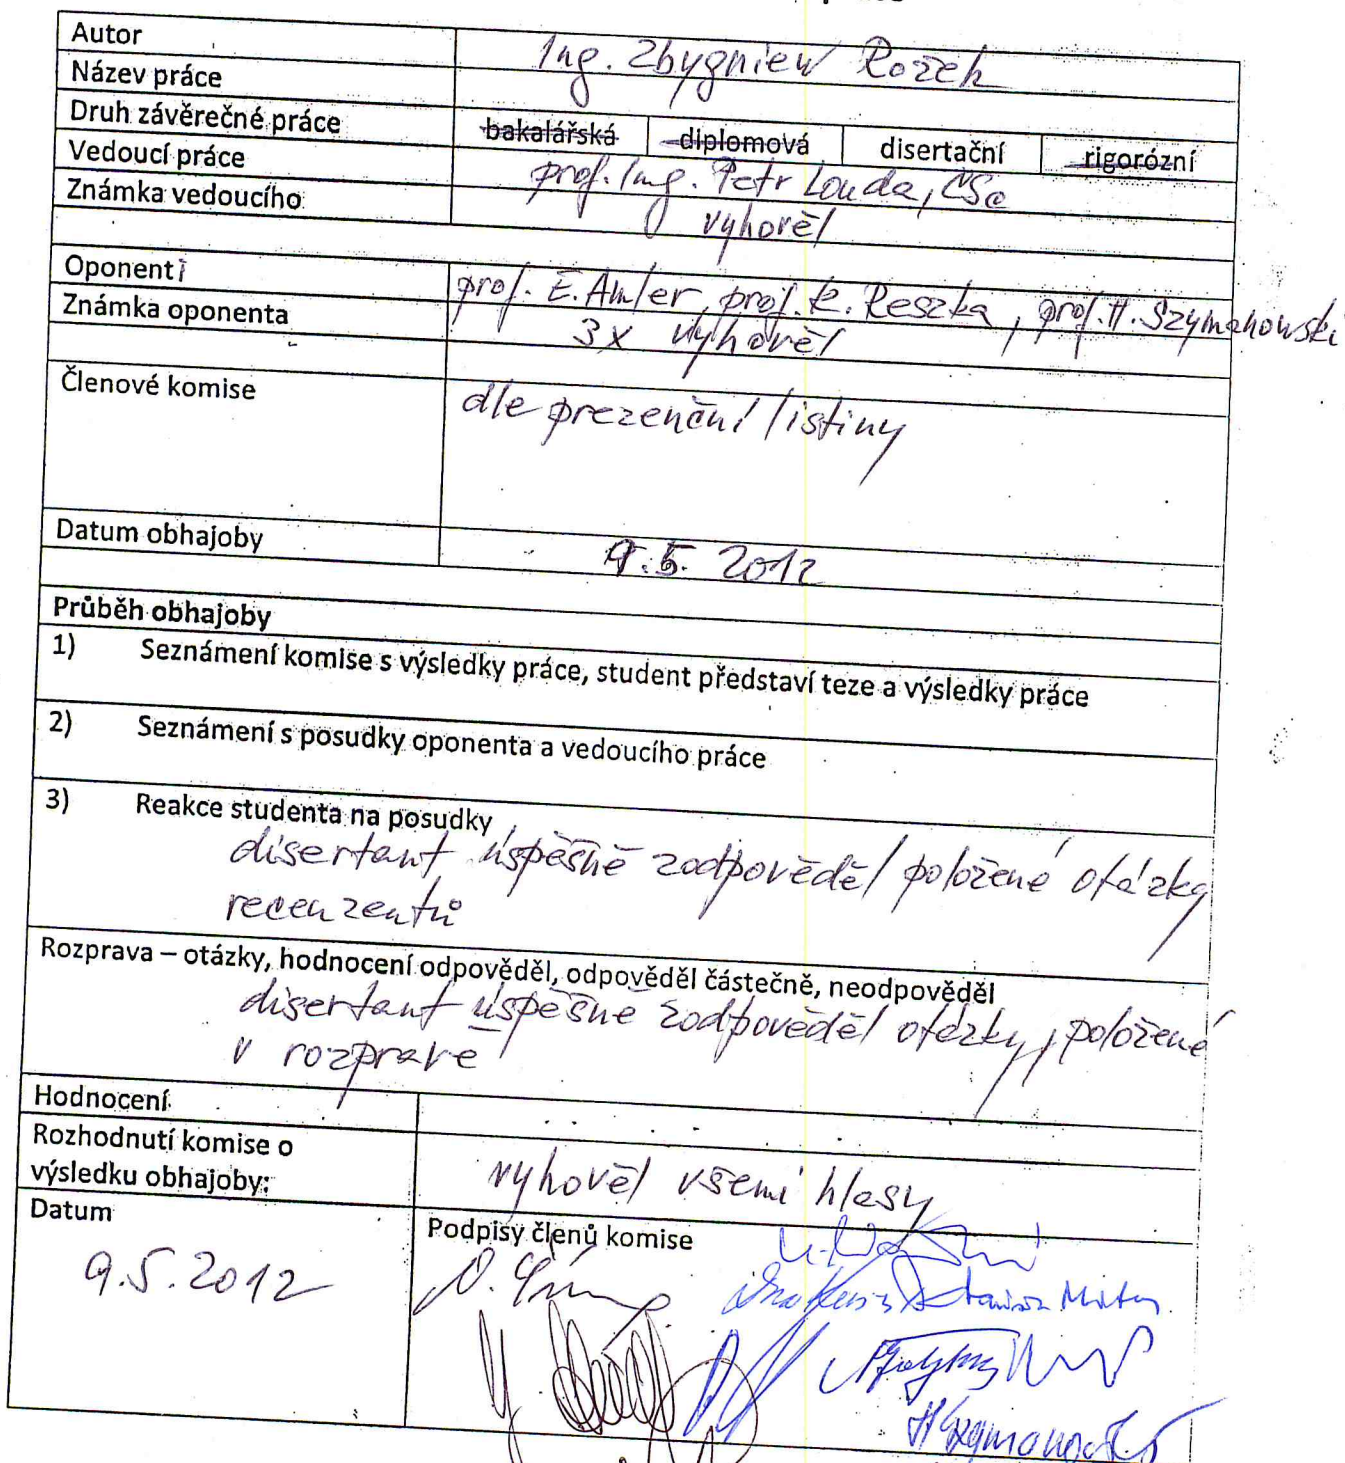 Autor Ing. Zbygniew Rożek
Název práce
Druh závěrečné práce bakalářská diplomová disertační rigorózní
Vedoucí práce prof. Ing. Petr Louda, CSc
Známka vedoucího vyhověl
Oponenti prof. E. Amler, prof. K. Reszka, prof. H. Szymanowski
Známka oponenta 3x vyhověl
Členové komise dle prezenční listiny
Datum obhajoby 9.5. 2012
Průběh obhajoby
1) Seznámení komise s výsledky práce, student představí teze a výsledky práce
2) Seznámení s posudky oponenta a vedoucího práce
3) Reakce studenta na posudky
disertant úspěšně zodpověděl položené otázky
recenzentů
Rozprava – otázky, hodnocení odpověděl, odpověděl částečně, neodpověděl
disertant úspěšně zodpověděl otázky, položené
v rozpravě
Hodnocení
Rozhodnutí komise o
výsledku obhajoby: vyhověl všemi hlasy
Datum Podpisy členů komise
9.5.2012